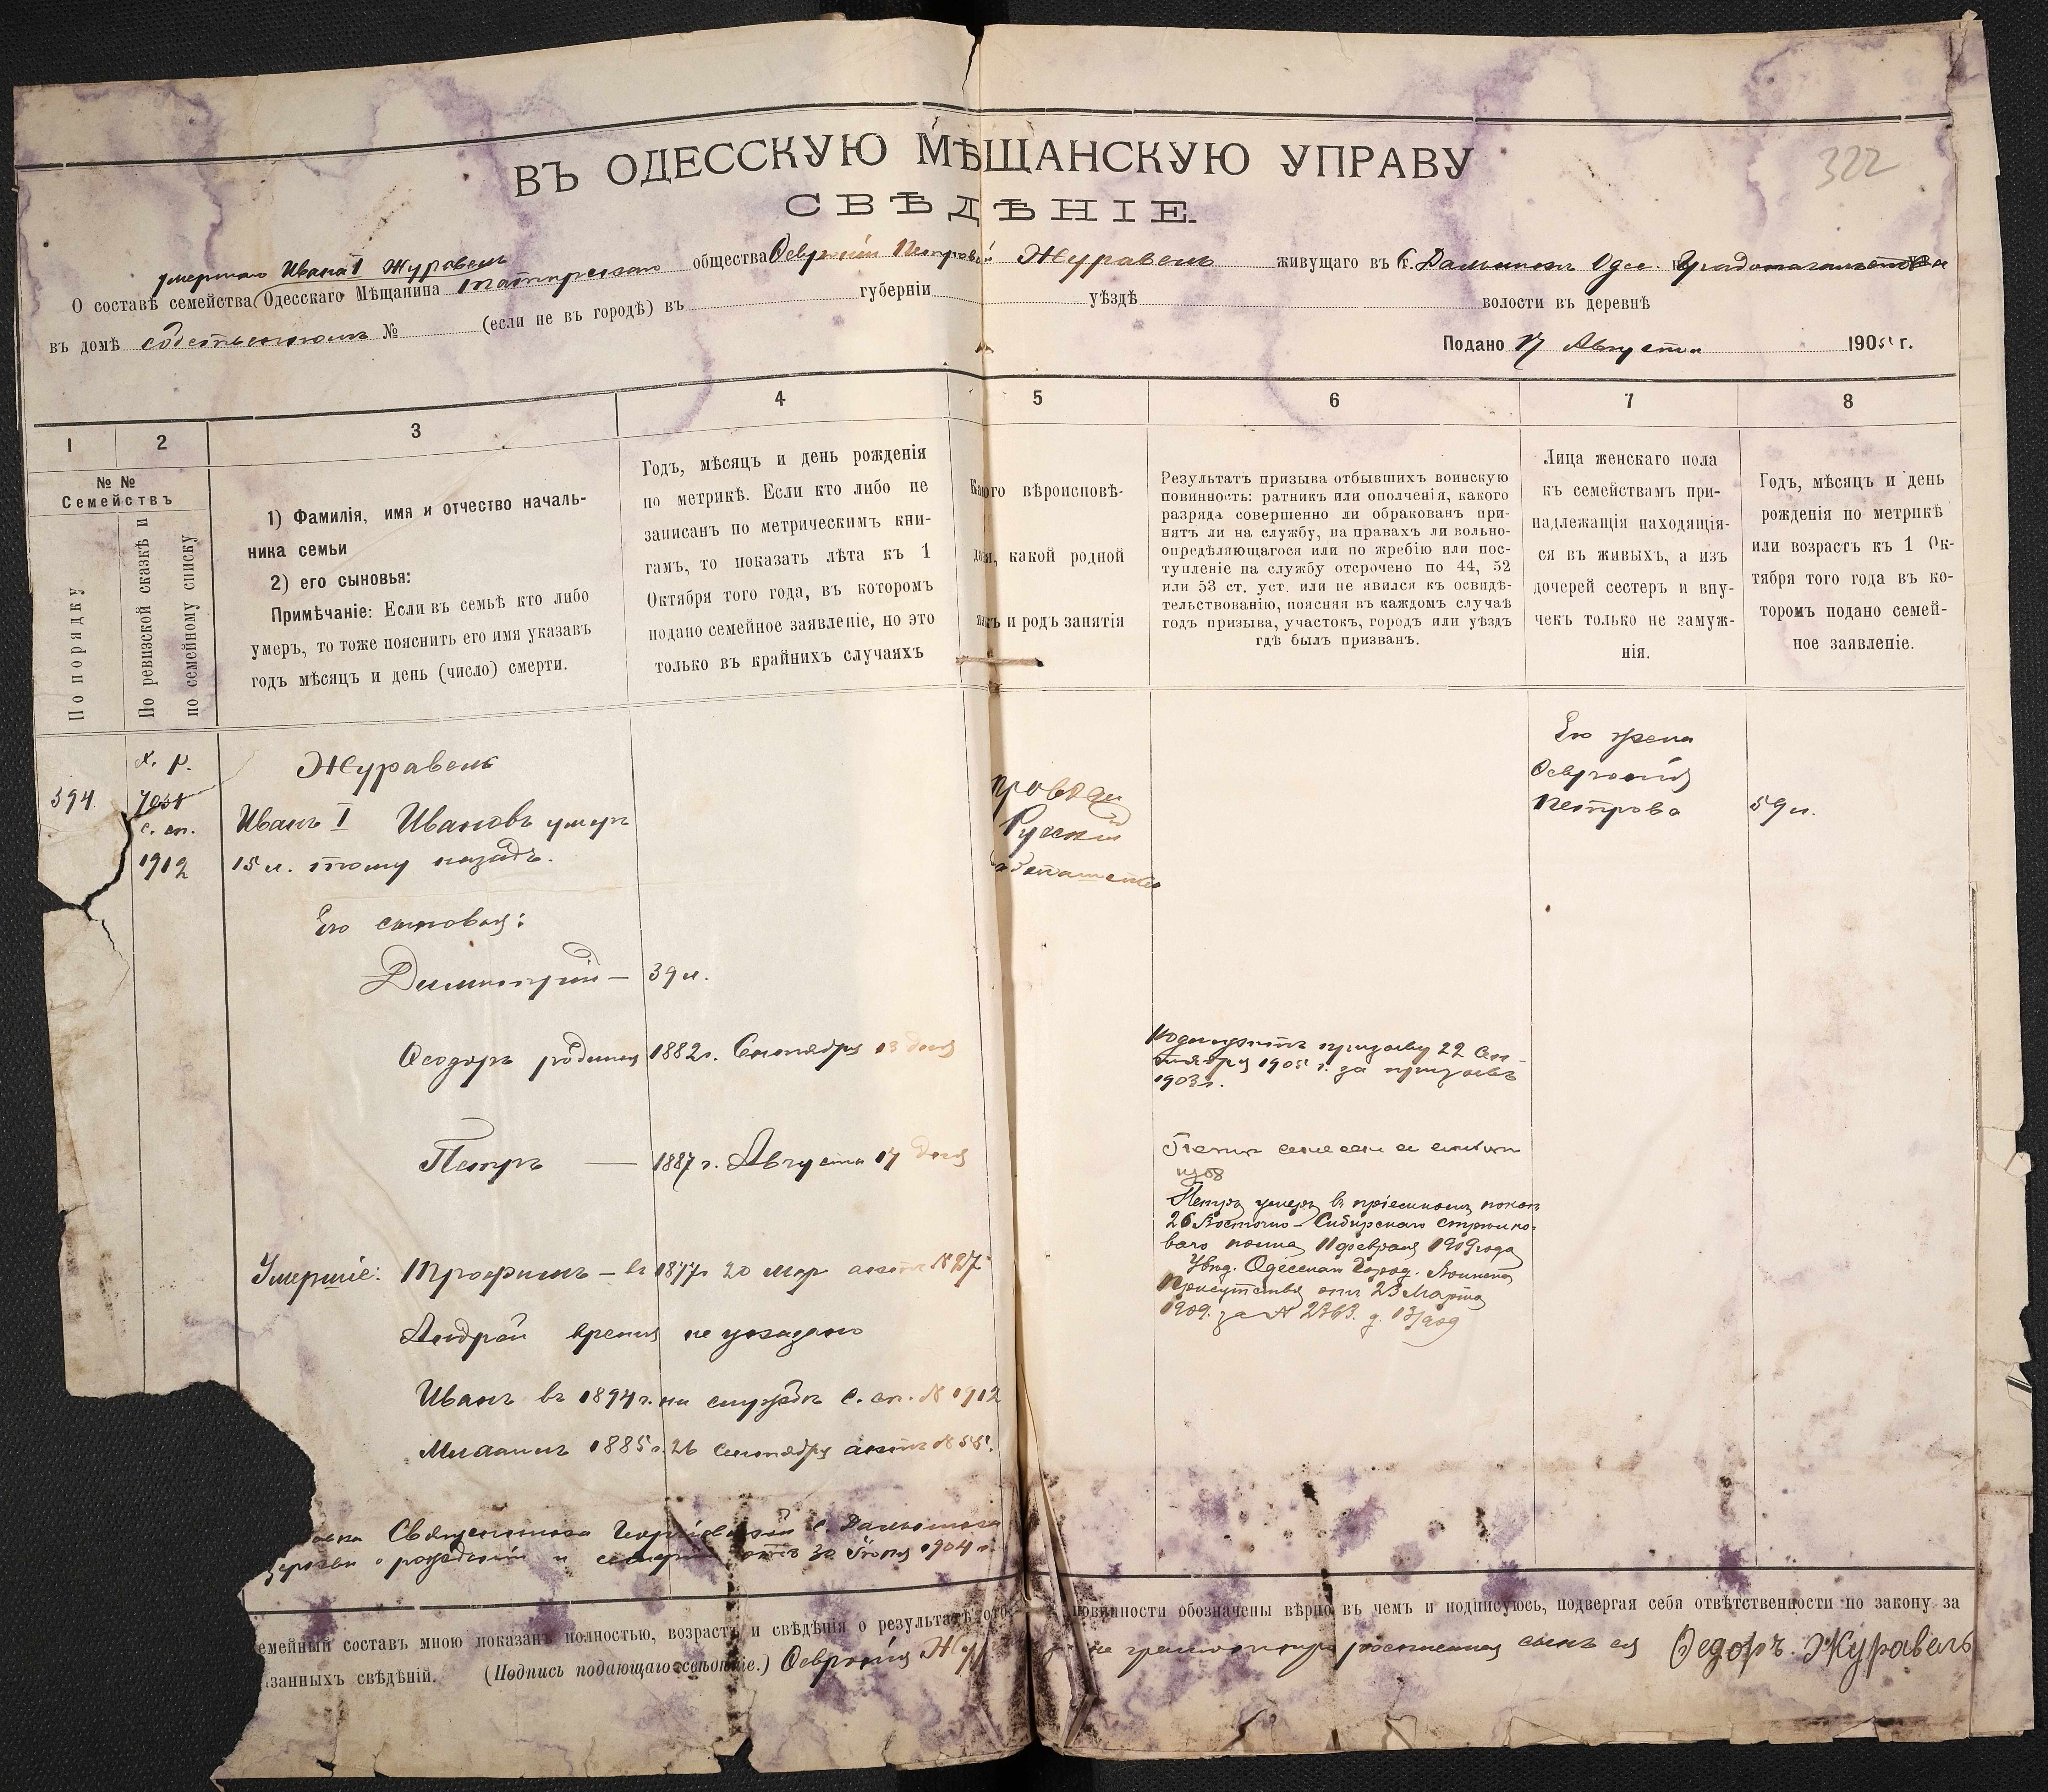 ВЪ ОДЕССКУЮ МѢЩАНСКУЮ УПРАВУ
322
СВѢДѢНІЕ.
умершаго Ивана I Журавель
О составѣ семейства (Одесскаго Мѣщанина общества Февронiи Петровой Журавель живущаго въ с. Дальникъ Одес. Градоначальства
въ домѣ собственномъ № (если не въ городѣ) въ губерніи уѣздѣ волости въ деревнѣ
Подано 17 Августа 1905 г.
1 2 3 4 5 6 7 8
№ №
Семействъ
По порядку
По ревизской сказкѣ и
по семейному списку
1) Фамилія, имя и отчество началь-
ника семьи
2) его сыновья:
Примѣчаніе: Если въ семьѣ кто либо
умеръ, то тоже пояснить его имя указавъ
годъ мѣсяцъ и день (число) смерти.
Годъ, мѣсяцъ и день рожденія
по метрикѣ. Если кто либо не
записанъ по метрическимъ кни-
гамъ, то показать лѣта къ 1
Октября того года, въ которомъ
подано семейное заявленіе, но это
только въ крайнихъ случаяхъ
Какого вѣроисповѣ-
данія, какой родной
языкъ и родъ занятія
Результатъ призыва отбывшихъ воинскую
повинность: ратникъ или ополченія, какого
разряда совершенно ли обракованъ при-
нятъ ли на службу, на правахъ ли вольно-
опредѣляющагося или по жребію или пос-
тупленіе на службу отсрочено по 44, 52
или 53 ст. уст. или не явился къ освидѣ-
тельствованію, поясняя въ каждомъ случаѣ
годъ призыва, участокъ, городъ или уѣздъ
гдѣ былъ призванъ.
Лица женскаго пола
къ семействамъ при-
надлежащія находящія-
ся въ живыхъ, а изъ
дочерей сестеръ и вну-
чекъ только не замуж-
нія.
Годъ, мѣсяцъ и день
рожденія по метрикѣ
или возрастъ къ 1 Ок-
тября того года въ ко-
торомъ подано семей-
ное заявленіе.
394
х. р.
с. сп.
1912
Журавель
Иванъ I Ивановъ умеръ
15 л. тому назадъ.
Его сыновья:
Димитрій — 39 л.
Ѳеодоръ родился 1882 г. Сентября 13 дня
Петръ — 1887 г. Августа 17 дня
Умершіе: Трофимъ — въ 1877 г. 20 мар актъ № 27
Андрей время не указано
Иванъ въ 1894 г. на службѣ с. сп. № 1912
Михаилъ 1885 г. 26 сентября актъ № 55.
Правосл
Русскій
Его жена
Февронія
Петрова
59 л.
Подлежитъ призыву 22 Сен-
тября 1905 г. за призывъ
1903 г.
Петръ умеръ въ пріемномъ покоѣ
26 Восточно-Сибирскаго стрѣлко-
ваго полка 11 февраля 1909 года
Увѣд. Одесскаго Город. Воинск.
Присутствія отъ 23 Марта
1909. за № 2363.
Священника Георгіевской с. Дальника
церкви о рожденіи и смерти отъ 30 Іюня 1904 г.
емейный составъ мною показанъ полностью, возрастъ и свѣдѣнія о результатѣ повинности обозначены вѣрно въ чемъ и подписуюсь, подвергая себя отвѣтственности по закону за
занныхъ свѣдѣній. (Подпись подающаго свѣдѣніе.) Февронія Жур не грамотную росписался сынъ ея Федоръ Журавель